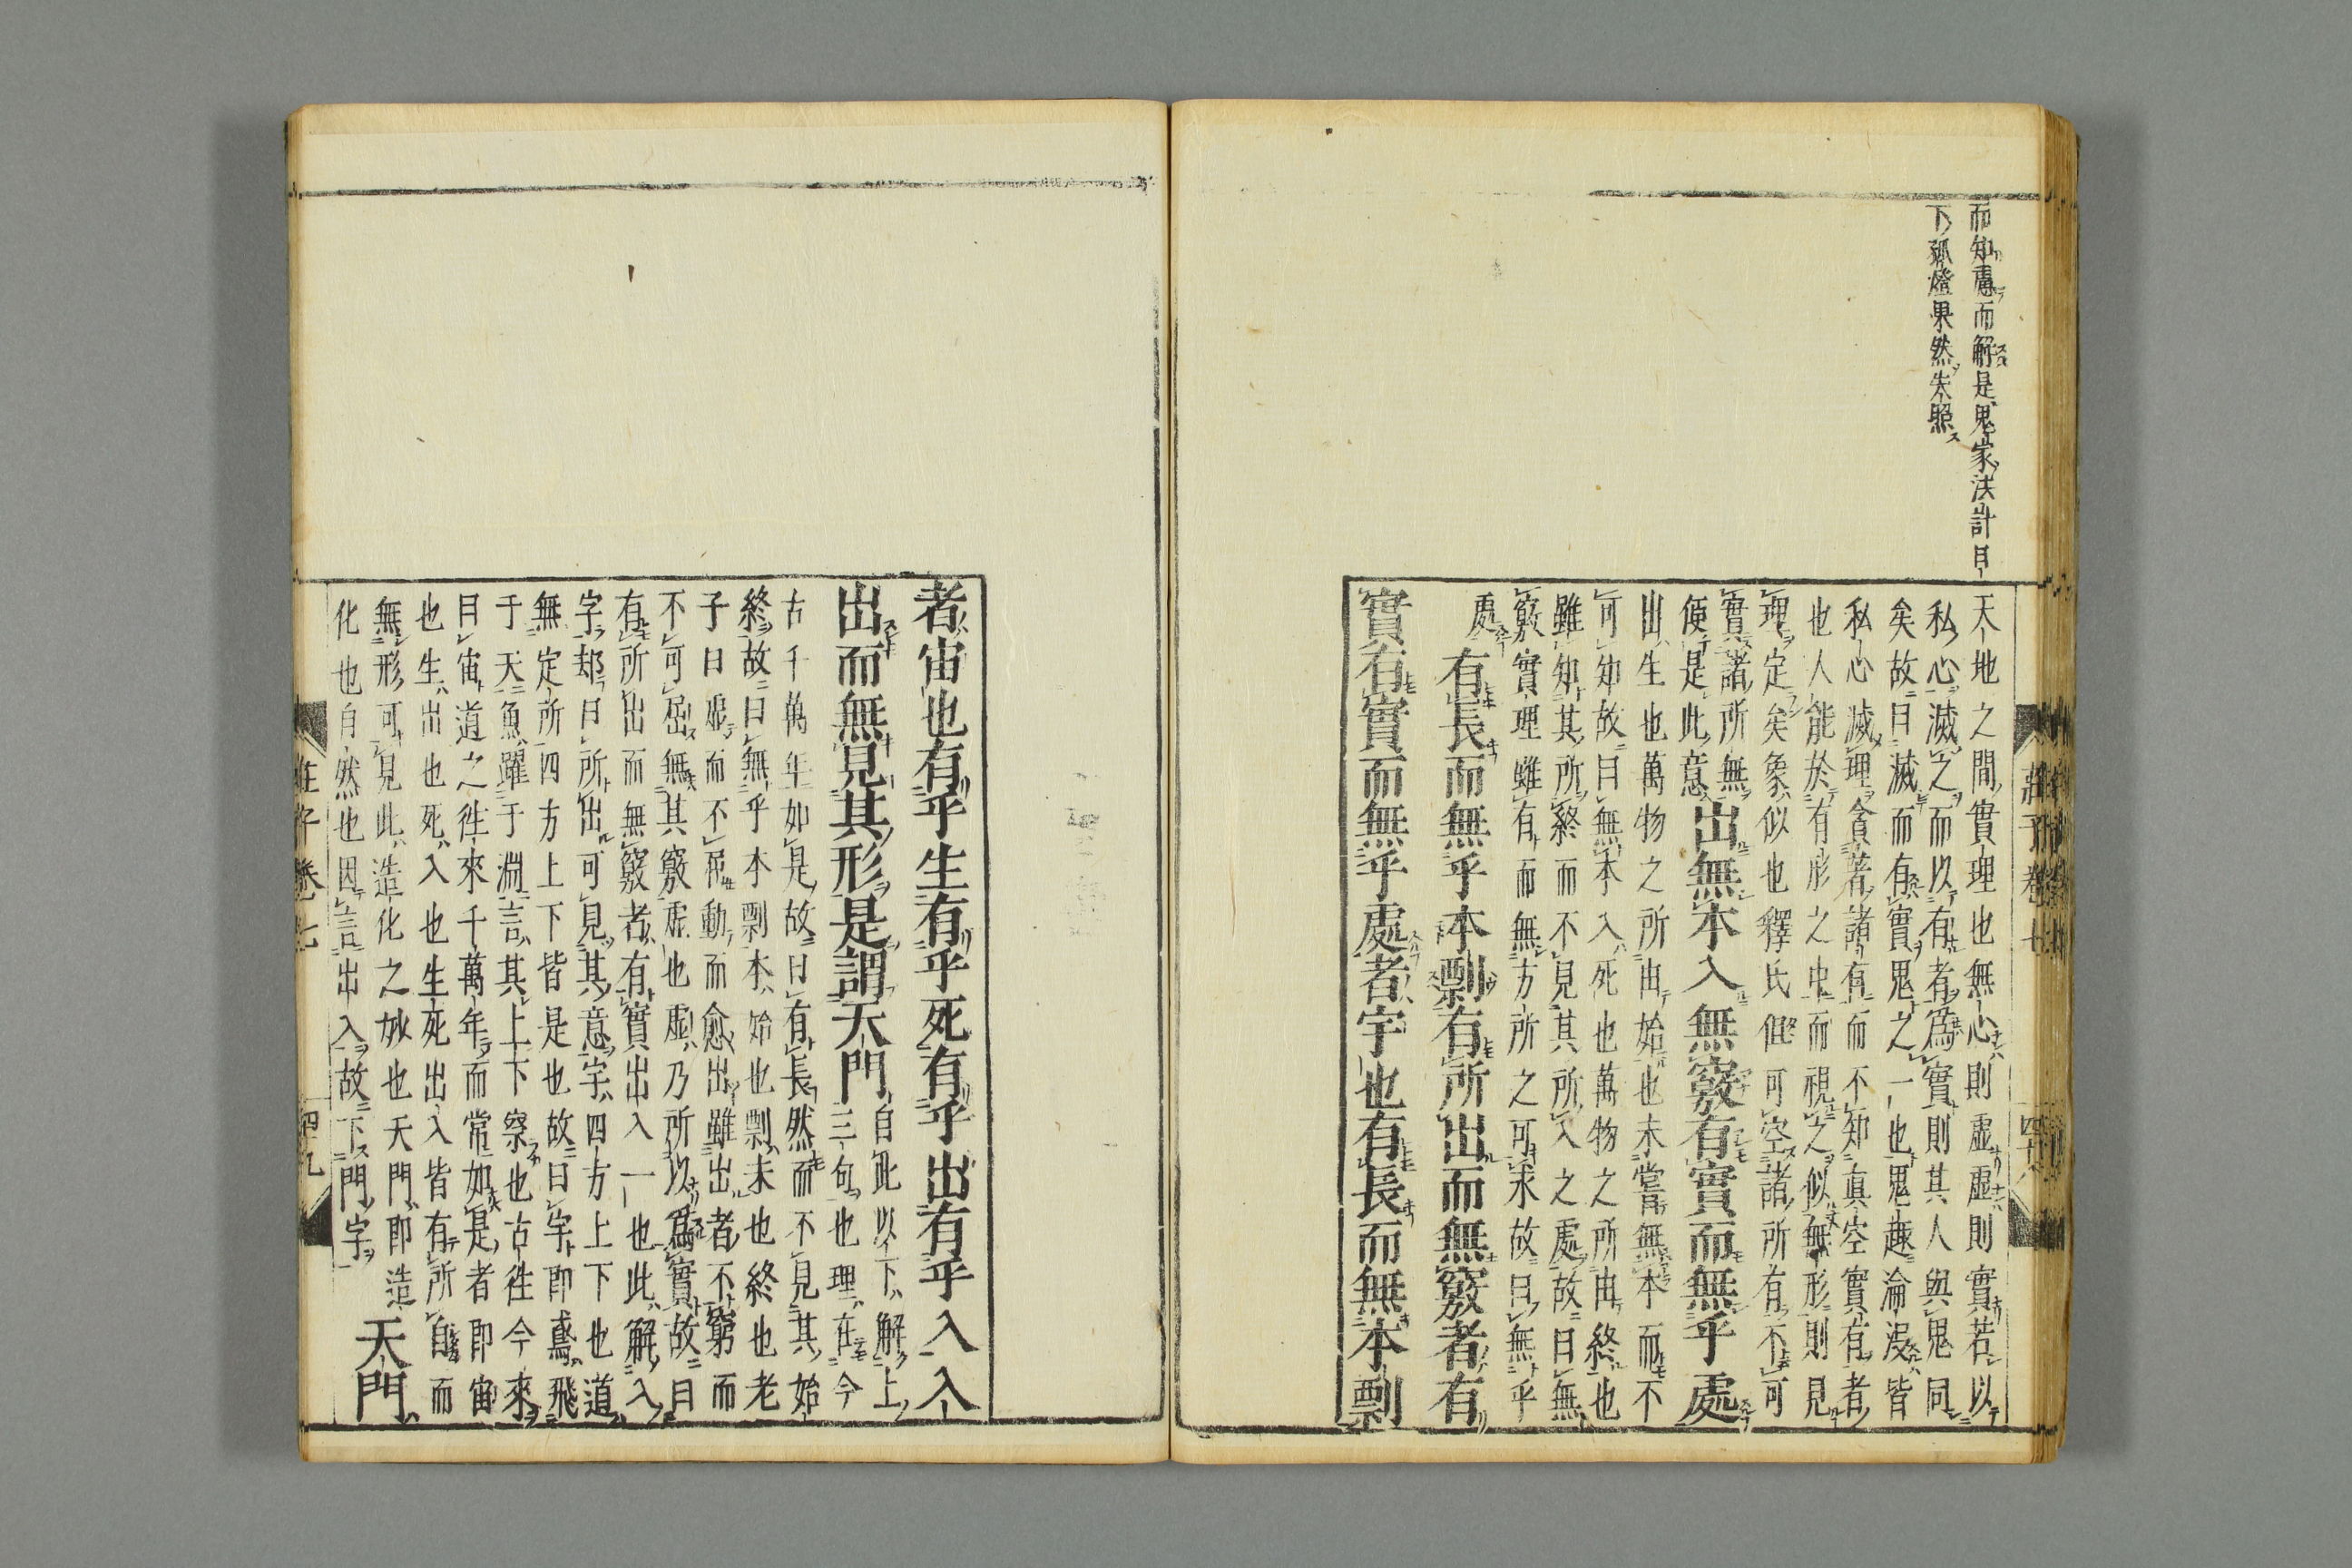 而知慮而解是鬼家活計日
下孤燈果然失照
天地之間實理也無心則虛虛則實若以
私心滅之而以有者爲實則其人與鬼同
矣故曰滅而有實鬼之一也鬼趣淪沒皆
私心滅理貪著諸有而不知眞空實有者
也人能於有形之中而視之似無形則見
理定矣象似也釋氏但可空諸所有不可
實諸所無
便是此意出無本入無竅有實而無乎處
出生也萬物之所由始也未嘗無本而不
可知故曰無本入死也萬物之所由終也
雖知其所終而不見其所入之處故曰無
竅實理雖有而無方所之可求故曰無乎
處有長而無乎本剽有所出而無竅者有
實有實而無乎處者宇也有長而無本剽
莊子卷七
四十八
者宙也有乎生有乎死有乎出有乎入入
出而無見其形是謂天門自此以下解上
三句也理在今
古千萬年如是故曰有長然而不見其始
終故曰無乎本剽本始也剽末也終也老
子曰虛而不屈動而愈出雖出者不窮而
不可屈無其竅虛也虛乃所以爲實故曰
有所出而無竅者有實出入一也此解入
字却曰所出可見其意宇四方上下也道
無定所四方上下皆是也故曰宇卽鳶飛
于天魚躍于淵言其上下察也古往今來
曰宙道之往來千萬年而常如是者卽宙
也生出也死入也生死出入皆有所自而
無形可見此造化之妙也天門卽造
化也自然也因言出入故下門字天門
莊子卷七
四十九